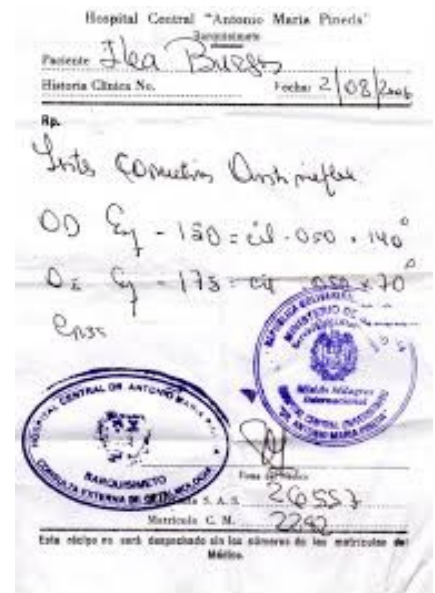 Hospital Central "Antonio Maria Pineda"
Barquisimeto
Paciente Ilea Burgos
Historia Clínica No. Fecha: 2/08/2006
Rp.
Lentes Correctivos Antireflex
OD Esf - 150 = cil - 050 x 140°
OI Esf - 175 = cil - 050 x 70°
HOSPITAL CENTRAL DR ANTONIO MARIA
BARQUISIMETO
CONSULTA EXTERNA DE OFTALMOLOGIA
REPUBLICA BOLIVARIANA
MINISTERIO DE
Misión Milagro
Internacional
HOSPITAL CENTRAL UNIVERSITARIO
"DR ANTONIO MARIA PINEDA"
Firma del Médico
S. A. S. 26557
Matrícula C. M. 2292
Este récipe no será despachado sin los números de las matrículas del
Médico.